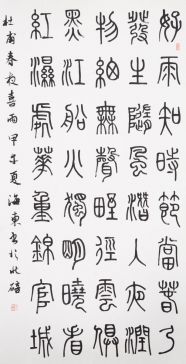 好雨知時節當春乃
發生隨風潛入夜潤
物細無聲野徑雲俱
黑江船火獨明曉看
紅濕處華重錦官城
杜甫春夜喜雨甲午夏海東書於北碚